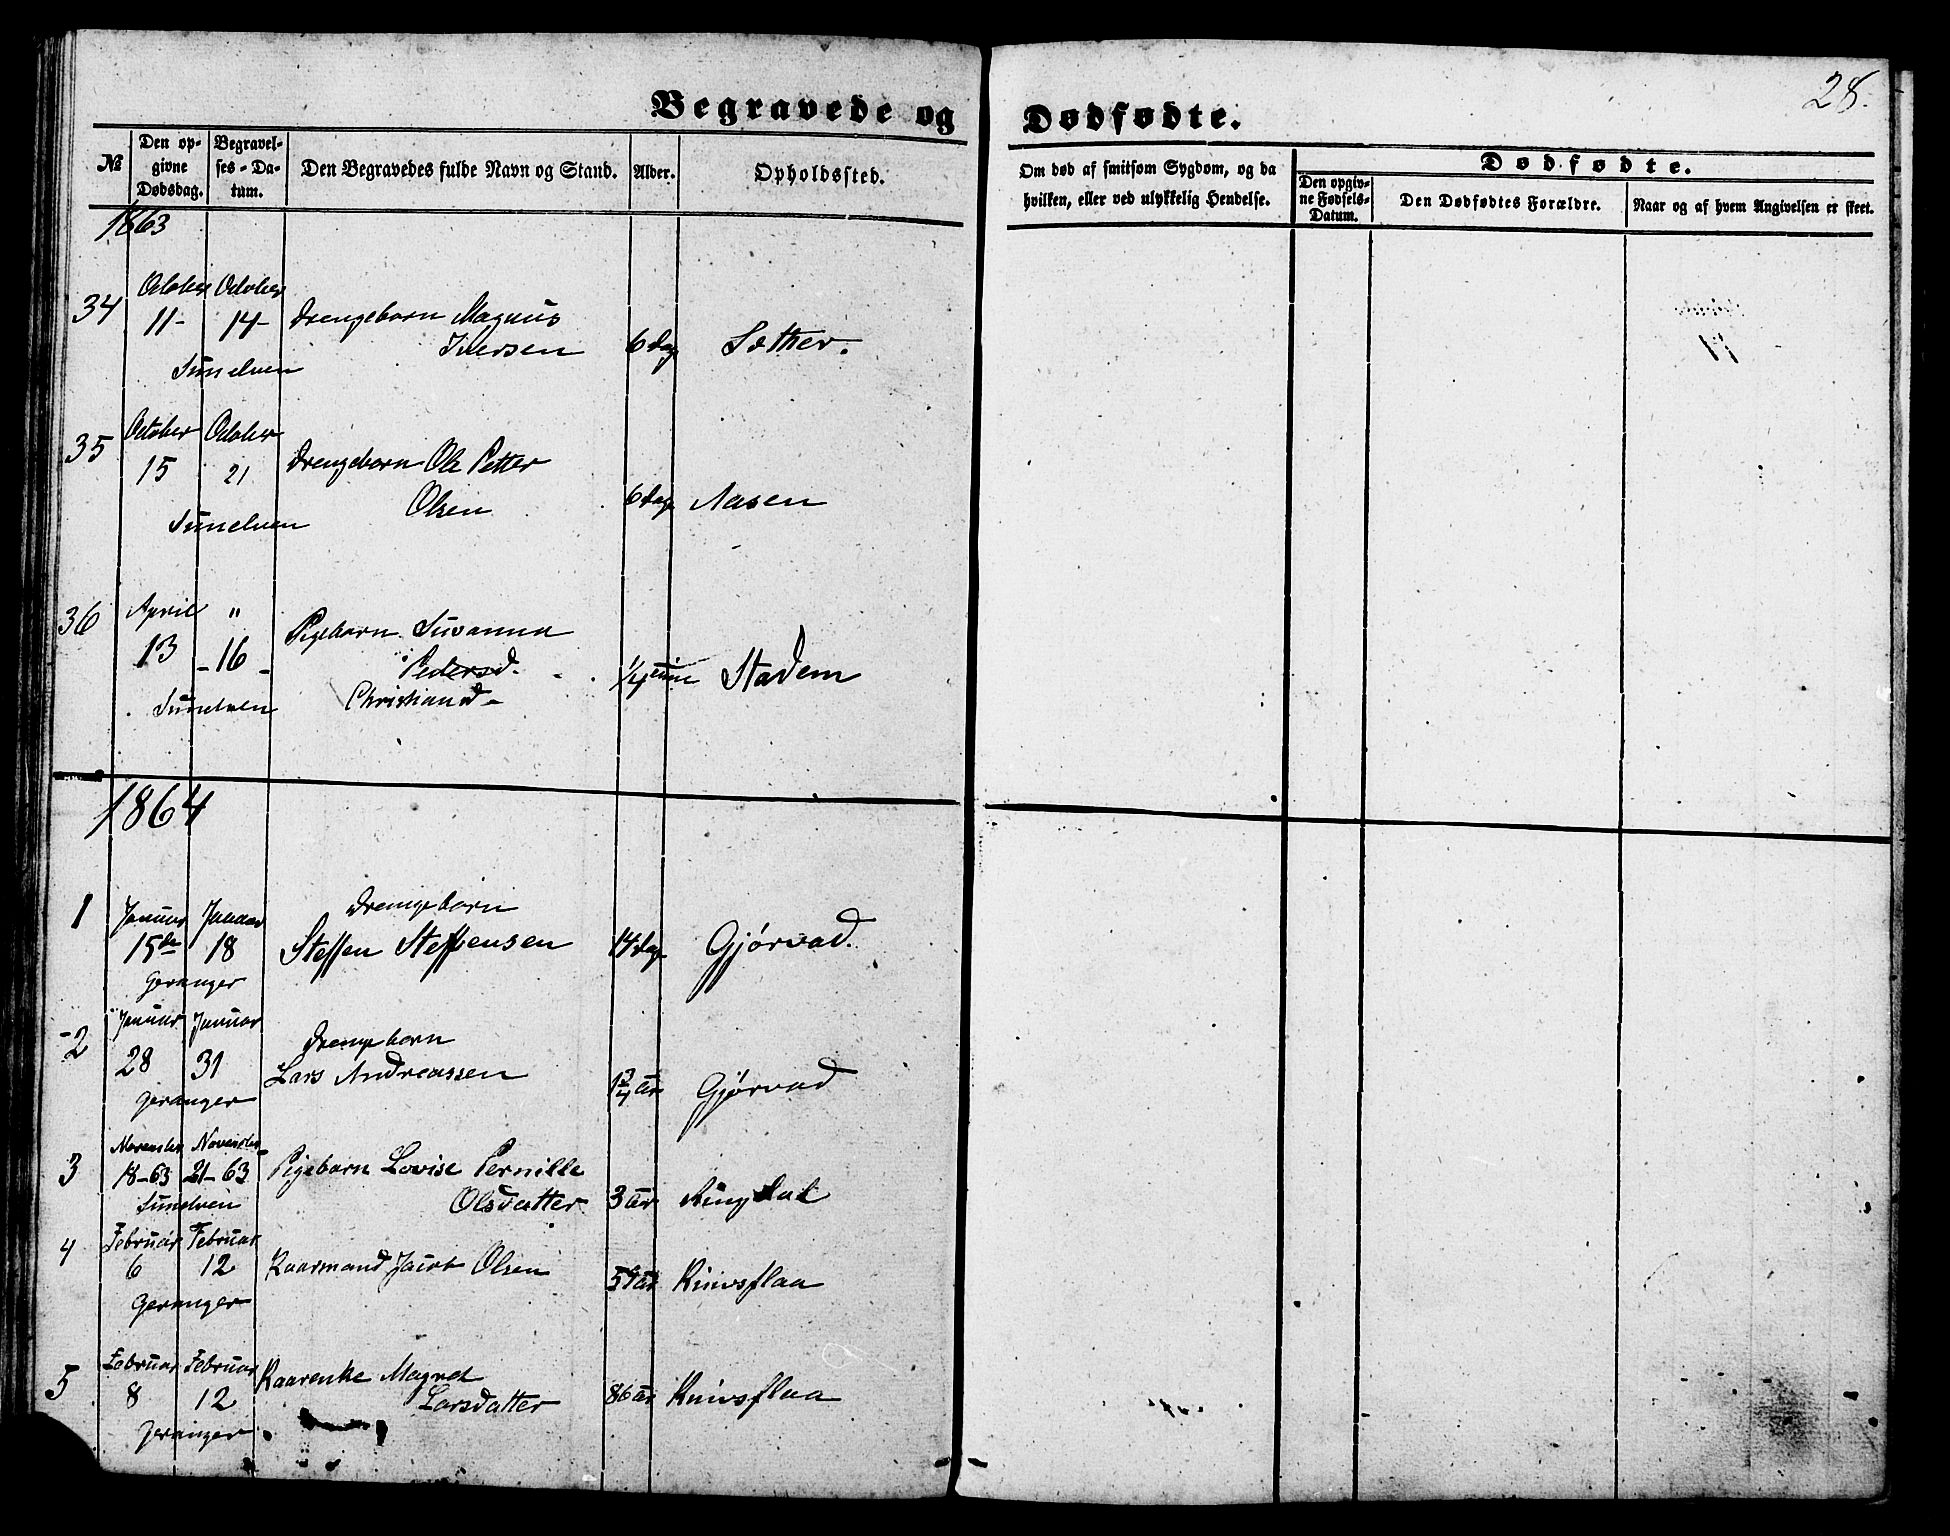 28.
Begravede og Dødfødte.
№
Den opgivne Dødsdag.
Begravelses-Datum.
Den Begravedes fulde Navn og Stand.
Alder.
Opholdssted.
Om død af smitsom Sygdom, og da hvilken, eller ved ulykkelig Hendelse.
Dødfødte.
Den opgivne Fødsels-Datum.
Den Dødfødtes Forældre.
Naar og af hvem Angivelsen er skeet.
1863
34 October 11- October 14- Drengebarn Magnus
Iversen 6 dag Sæther.
Sunelven
35 October 15 October 21 Drengebarn Ole Petter
Olsen 6 dag Aasen
Sunelven
36 April 13 " -16- Pigebarn Susanna
Pedersd.
Christiansd- 1/4 Stadem
Sunelven
1864
1 Januar 15de Januar 18 Drengebarn
Steffen Steffensen 14 dag Gjørvad.
Geranger
2 Januar 28 Januar 31 Drengebarn
Lars Andreassen 1 3/4 aar Gjørvad
Geranger
3 November 18-63 November 21-63 Pigebarn Lovise Pernille
Olsdatter 3 aar Ringdal
Sunelven
4 Februar 6 Februar 12 Kaarmand Jacob Olsen aar Knivsflaa
Geranger
5 Februar 8 Februar 12 Kaarenke Magret
Larsdatter 86 aar Knivsflaa
Geranger